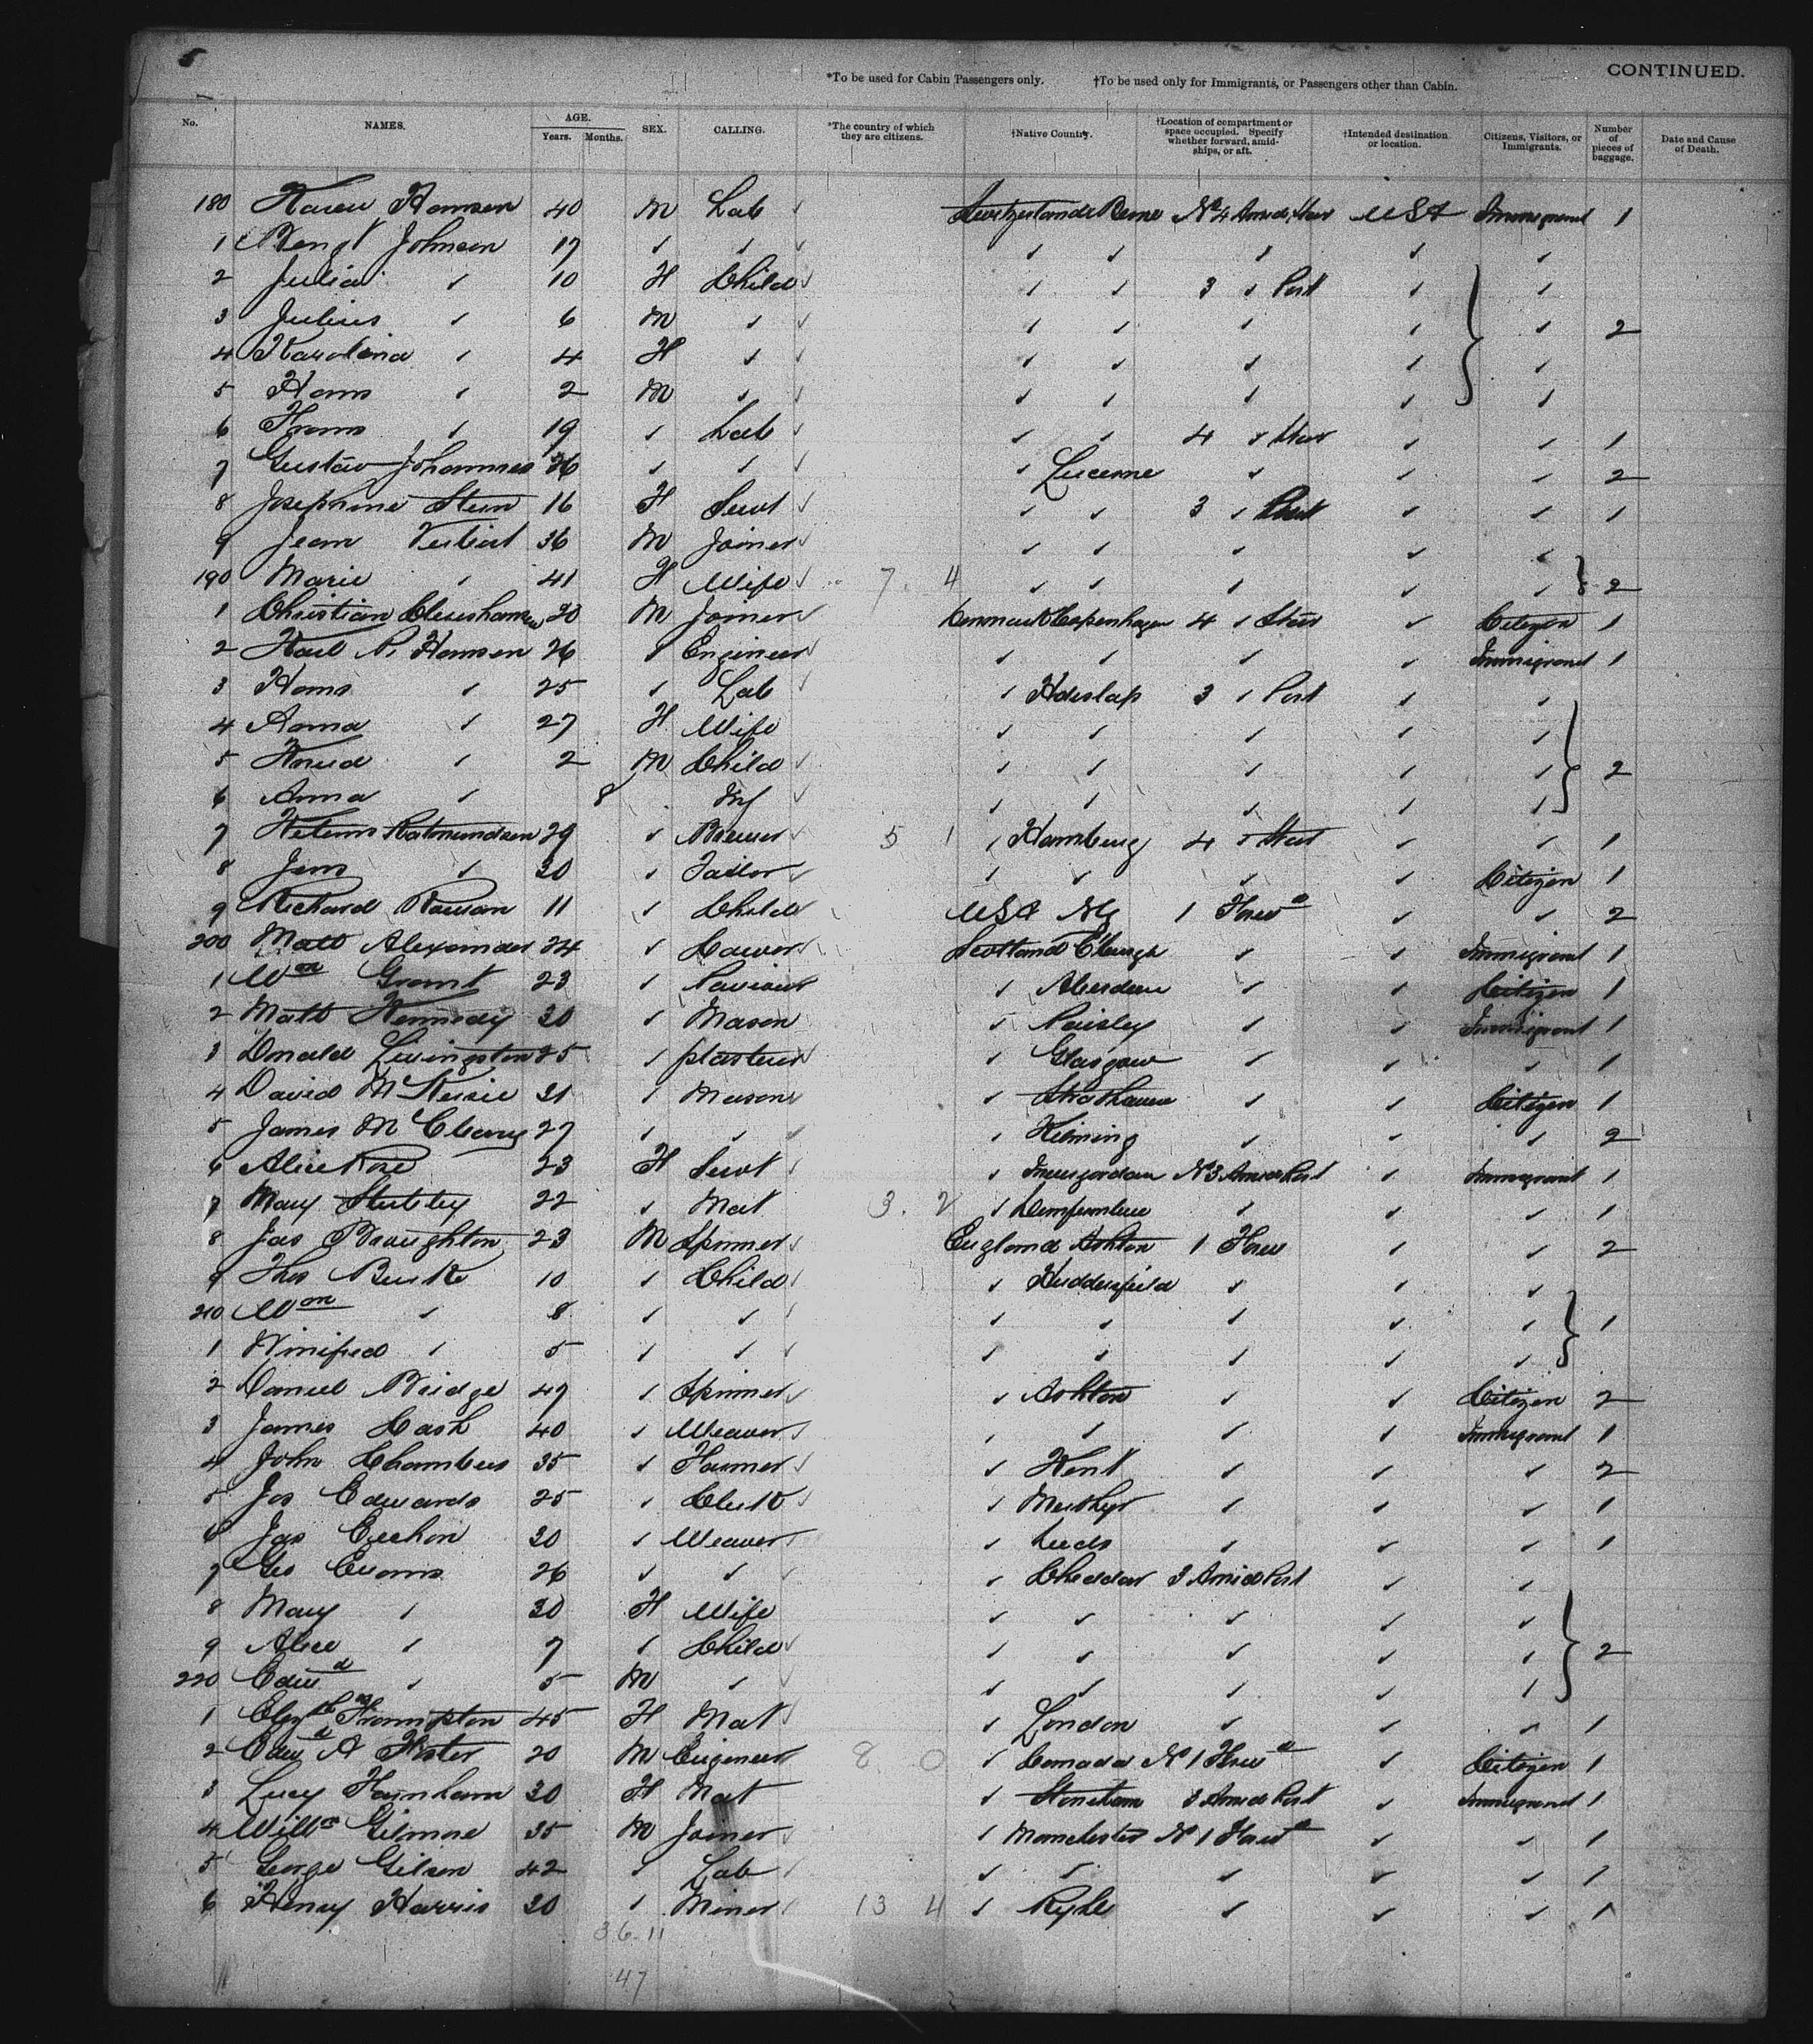 5
*To be used for Cabin Passengers only. †To be used only for Immigrants, or Passengers other than Cabin. CONTINUED.
No. NAMES. AGE. Years. Months. SEX. CALLING. *The country of which they are citizens. †Native Country. †Location of compartment or space occupied. Specify whether forward, amidships, or aft. †Intended destination or location. Citizens, Visitors, or Immigrants. Number of pieces of baggage. Date and Cause of Death.
180 Hansen 40 M Lab ✓ Berne No 4 USA Immigrant 1
1 Bengt Johnsen 17 ✓ ✓ ✓ ✓ ✓ ✓ ✓ ✓
2 Julia ✓ 10 F Child ✓ ✓ ✓ 3 ✓ Port ✓ ✓
3 Julius ✓ 6 M ✓ ✓ ✓ ✓ ✓ ✓ ✓ 2
4 Karolina ✓ 4 F ✓ ✓ ✓ ✓ ✓ ✓
5 Hans ✓ 2 M ✓ ✓ ✓ ✓ ✓ ✓ ✓
6 Frans ✓ 19 ✓ Lab ✓ ✓ ✓ 4 ✓ Star ✓ ✓ 1
7 Gustav Johannes 26 ✓ ✓ ✓ ✓ Lucerne ✓ ✓ ✓ 2
8 Josephine Stein 16 F Servt ✓ ✓ ✓ 3 ✓ Port ✓ ✓ 1
9 Jean 36 M Joiner ✓ ✓ ✓ ✓ ✓ ✓
190 Marie ✓ 41 F Wife ✓ 7. 4 ✓ ✓ ✓ ✓ ✓ 2
1 Christian 30 M Joiner ✓ Denmark Copenhagen 4 ✓ Star ✓ Citizen 1
2 Karl P. Hansen 26 ✓ Engineer ✓ ✓ ✓ ✓ ✓ Immigrant 1
3 Hans ✓ 25 ✓ Lab ✓ ✓ 3 ✓ Port ✓ ✓
4 Anna ✓ 27 F Wife ✓ ✓ ✓ ✓ ✓
5 Knud ✓ 2 M Child ✓ ✓ ✓ ✓ ✓ ✓ 2
6 Anna ✓ 8 Inf ✓ ✓ ✓ ✓ ✓ ✓
7 29 ✓ Brewer ✓ 5 1 ✓ Hamburg 4 ✓ Star ✓ ✓ 1
8 Jens ✓ 30 ✓ Tailor ✓ ✓ ✓ ✓ ✓ Citizen 1
9 Richard 11 ✓ Child ✓ USA 1 Forwd ✓ ✓ 2
200 Matt Alexander 24 ✓ ✓ Scotland ✓ ✓ Immigrant 1
1 Wm Grant 23 ✓ ✓ Aberdeen ✓ ✓ Citizen 1
2 Matt Kennedy 30 ✓ Mason ✓ Paisley ✓ ✓ Immigrant 1
3 Donald Livingston 25 ✓ plasterer ✓ Glasgow ✓ ✓ ✓ 1
4 David McKenzie 31 ✓ Mason ✓ ✓ Strathaven ✓ ✓ Citizen 1
5 James McCleary 27 ✓ ✓ ✓ ✓ ✓ ✓ ✓ 2
6 Alice Rose 23 F Servt ✓ ✓ No 3 Amid Port ✓ Immigrant 1
7 Mary 22 ✓ Mat 3. 2 ✓ Dunfermline ✓ ✓ ✓ 1
8 Jas Broughton 23 M Spinner ✓ England Ashton 1 Forw ✓ ✓ 2
9 Thos Burke 10 ✓ Child ✓ ✓ Huddersfield ✓ ✓ ✓
210 Wm ✓ 8 ✓ ✓ ✓ ✓ ✓ ✓ ✓ ✓ 1
1 Winifred ✓ 5 ✓ ✓ ✓ ✓ ✓ ✓ ✓ ✓
2 Daniel Bridge 47 ✓ Spinner ✓ ✓ Ashton ✓ ✓ Citizen 2
3 James Cash 40 ✓ Weaver ✓ ✓ ✓ ✓ ✓ Immigrant 1
4 John Chambers 35 ✓ Farmer ✓ ✓ Kent ✓ ✓ ✓ 2
5 Jos Edwards 25 ✓ Clerk ✓ ✓ Merthyr ✓ ✓ ✓ 1
6 Jas 30 ✓ Weaver ✓ ✓ Leeds ✓ ✓ ✓ 1
7 Geo Evans 26 ✓ ✓ ✓ ✓ Cheddar 3 Amid Port ✓ ✓
8 Mary ✓ 30 F Wife ✓ ✓ ✓ ✓ ✓
9 Alice ✓ 7 ✓ Child ✓ ✓ ✓ ✓ ✓ ✓ 2
220 Edwd ✓ 5 M ✓ ✓ ✓ ✓ ✓ ✓
1 Elizth Frampton 45 F Mat ✓ ✓ London ✓ ✓ ✓ 1
2 Edwd A Foster 20 M Engineer 8 0 ✓ Canada No 1 Forwd ✓ Citizen 1
3 Lucy Farnham 30 F Mat ✓ 3 Amid Port ✓ Immigrant 1
4 Willm Gilmore 35 M Joiner ✓ ✓ Manchester No 1 Forwd ✓ ✓ 1
5 George Gilson 42 ✓ Lab ✓ ✓ ✓ ✓ ✓ ✓ 1
6 Henry Harris 30 ✓ Miner ✓ 13 4 ✓ Ryhl ✓ ✓ ✓ 1
36.11
47